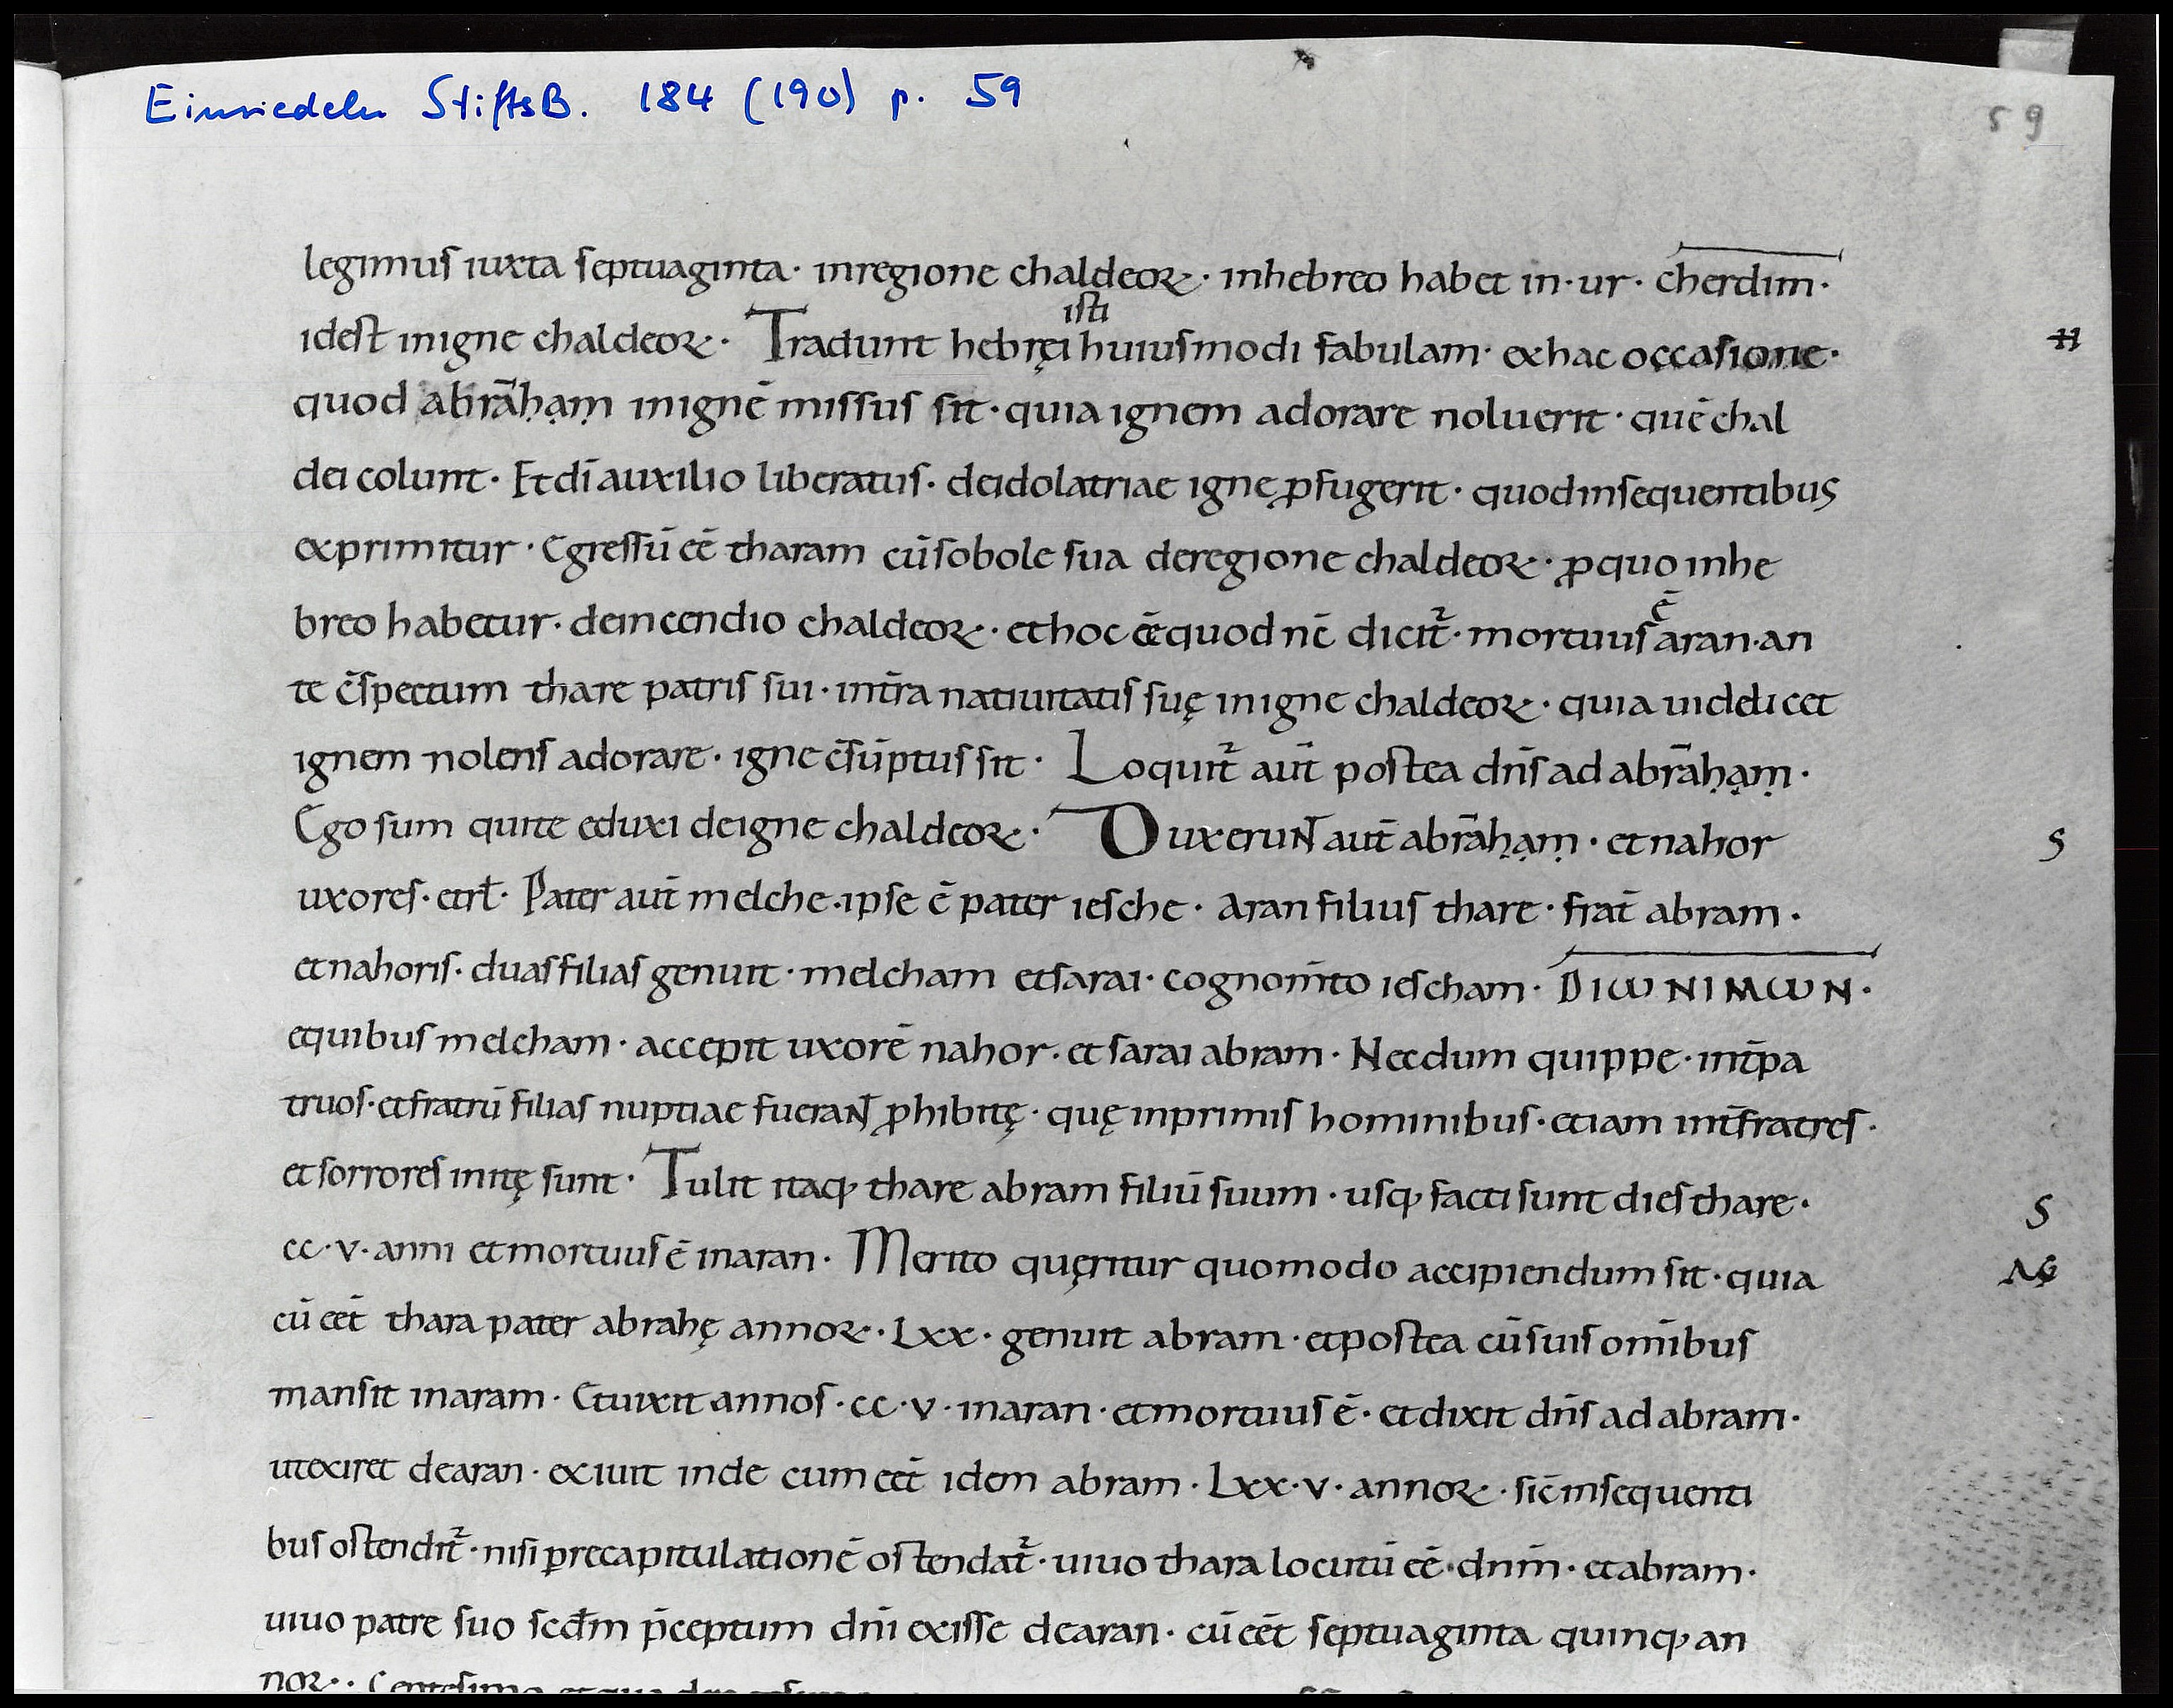 Einsiedeln StiftsB. 184 (190) p. 59
59
legimus iuxta septuaginta · inregione chaldeoꝝ · inhebreo habet in · ur · cherdim ·
idest inigne chaldeoꝝ · Tradunt hebręi isti huiusmodi fabulam · exhac occasione ·
H
quod abrạ̄ḥạṃ inignē missus sit · quia ignem adorare noluerit · quē chal
dei colunt · Et dī auxilio liberatus · deidolatriae igne ꝓfugerit · quodinsequentibus
exprimitur · Egressū eē tharam cū sobole sua deregione chaldeoꝝ · ꝓquo inhe
breo habetur · deincendio chaldeoꝝ · ethoc ēquod nē dicit᷑ · mortuus ē aran · an
te c̄spectum thare patris sui · int̄ra natiuitatis suę inigne chaldeoꝝ · quia uidelicet
ignem nolens adorare · igne c̄sūptus sit · Loquit᷑ aut̄ postea dn̄s ad abrāḥạṃ ·
Ego sum quite eduxi deigne chaldeoꝝ · Duxerunt aut̄ abrāḥạṃ · et nahor
S
uxores · et rł · Pater aut̄ melche · ipse ē pater iesche · Aran filius thare · frat̄ abram ·
et nahoris · duas filias genuit · melcham et sarai · cognom̄to iescham · DIω NIMωN ·
equibus melcham · accepit uxorē nahor · et sarai abram · Necdum quippe · int̄pa
truos · et fratrū filias nuptiae fuerant ꝓhibitę · quę inprimis hominibus · etiam int̄fratres ·
et sorrores initę sunt · Tulit itaq; thare abram filiū suum · usq; facti sunt dies thare ·
S
cc · v · anni et mortuus ē inaran · Merito quęritur quomodo accipiendum sit · quia
AG
cū eēt thara pater abrahę annoꝝ · Lxx · genuit abram · et postea cū suis om̄ibus
mansit inaram · Et uixit annos · cc · v · inaran · et mortuus ē · et dixit dn̄s ad abram ·
utexiret dearan · exiuit inde cum eēt idem abram · Lxx · v · annoꝝ · sic̄ insequenti
bus ostendit᷑ · nisi ꝑrecapitulationē ostendat᷑ · uiuo thara locutū eē · dnm̄ · et abram ·
uiuo patre suo scđm p̄ceptum dn̄i exisse dearan · cū eēt septuaginta quinq; an
noꝝ · Centesimo